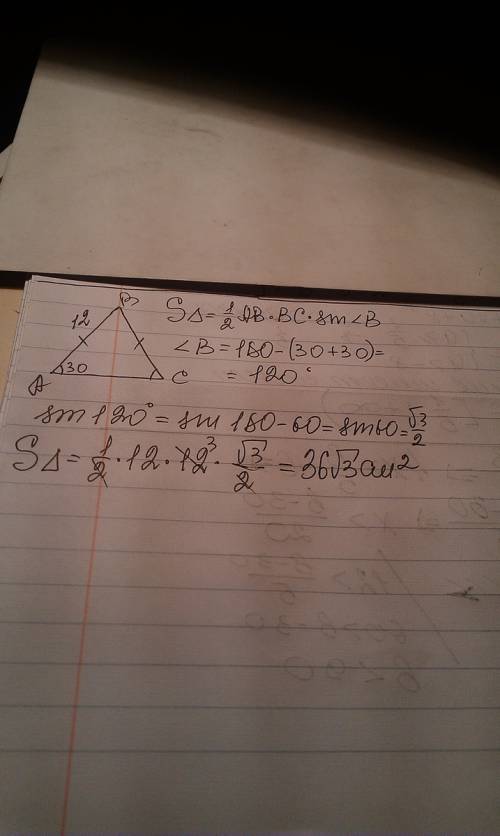 B
12
A 30 C
S△ = 1/2 AB · BC · sin ∠B
∠B = 180 - (30 + 30) =
= 120°
sin 120° = sin 180 - 60 = sin 60 = √3/2
S△ = 1/2 · 12 · 12 3 · √3/2 = 36√3 см²